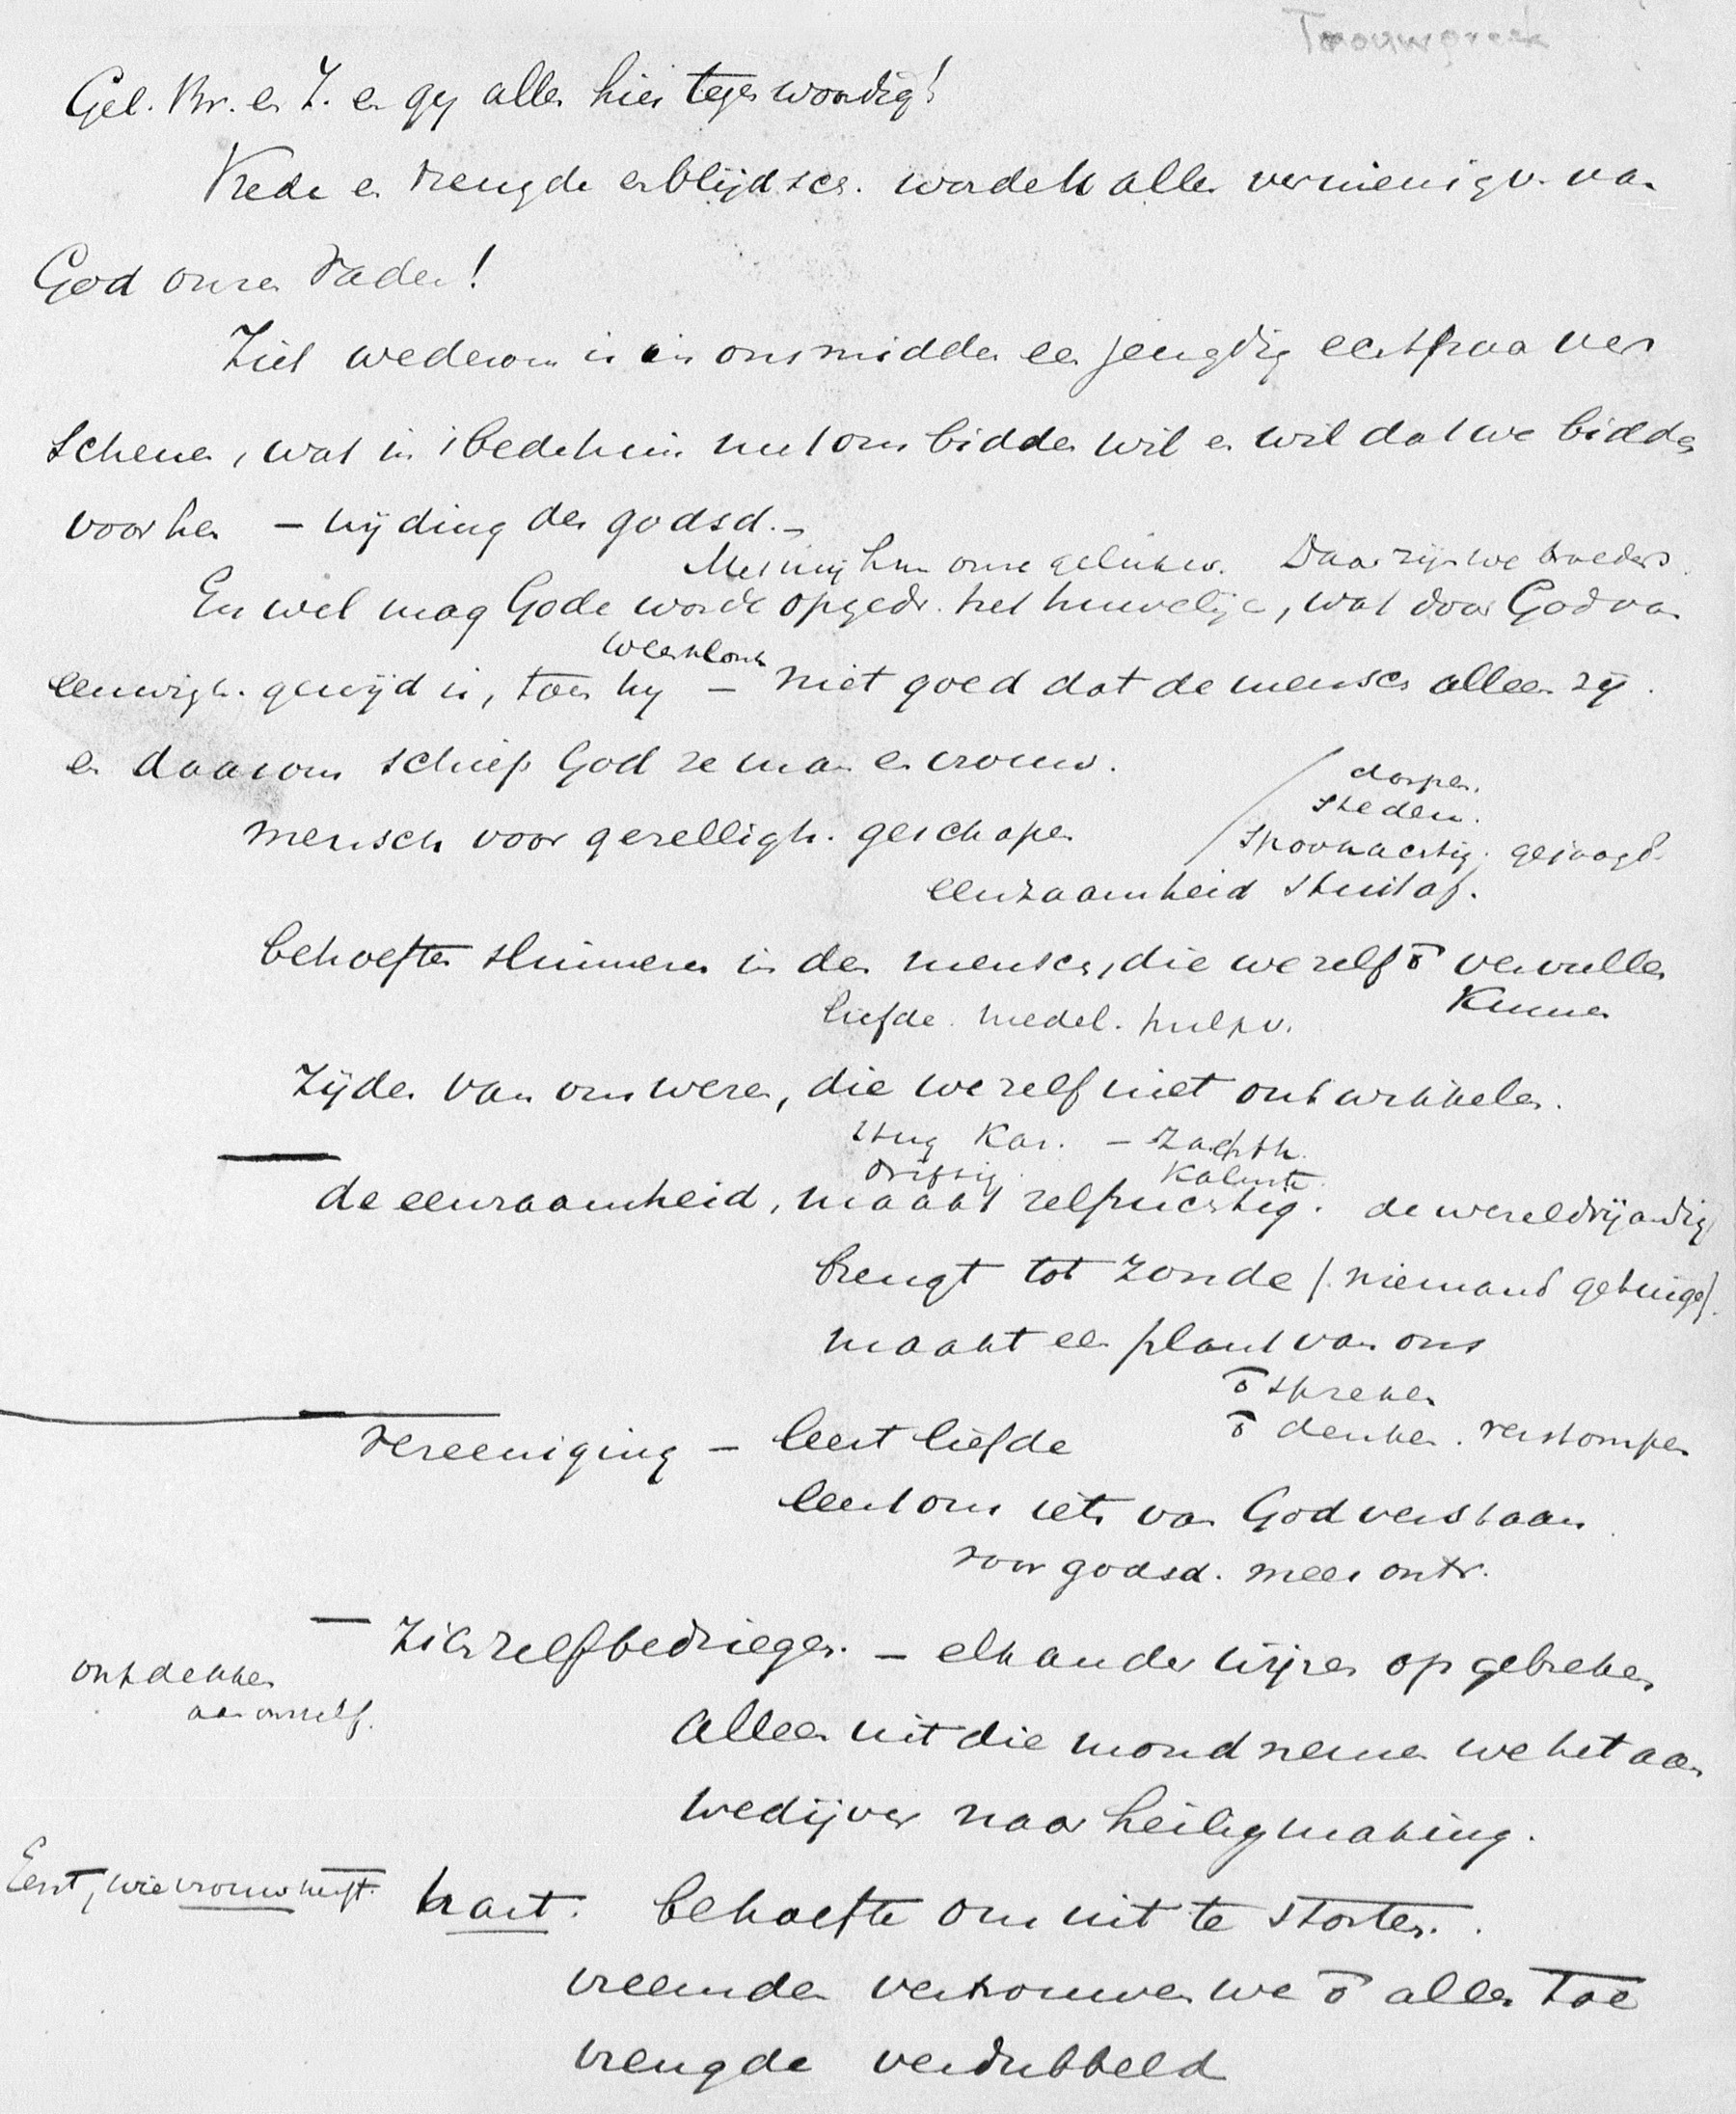 Trouwpreek
Gel. Br. en Z. en gij allen hier tegenwoordig!
Vrede en vreugde en blijdsch. worde U allen vermenigv. van
God onzen Vader!
Ziet wederom is in ons midden een jeugdig echtpaar ver
schenen, wat in 't bedehuis met ons bidden wil en wil dat we bidden
voor hen – wijding der godsd. –
Met mij hun onze gelukw. Daar zijn we broeders.
En wel mag Gode worde opgedr. het huwelijk, wat door God van
weerklonk
eeuwigh. gewijd is, toen hij – niet goed dat de mensch alleen zij.
en daarom schiep God ze man en vrouw.
dorpen.
steden.
mensch voor gezelligh. geschapen
spookachtig. gejaagd.
eenzaamheid stuit af.
behoeften sluimeren in den mensch, die we zelf ō vervullen
kunnen
liefde. medel. hulpv.
Zijden van ons wezen, die we zelf niet ontwikkelen.
stug kar. – zachth.
driftig. kalmte.
de eenzaamheid, maakt zelfzuchtig. de wereld vijandig
brengt tot zonde (niemand getuige).
maakt een plant van ons
ō spreken
ō denken. verstompen
Vereeniging – leert liefde
leert ons iets van God verstaan.
voor godsd. meer ontv.
– Zich zelf bedriegen. – elkander wijzen op gebreken
ontdekken
aan onszelf.
alleen uit die mond nemen we het aan
wedijver naar heiligmaking.
Eerst, wie vrouw heeft.
hart. behoefte om uit te storten.
vreemden vertrouwen we ō alles toe
vreugde verdubbeld